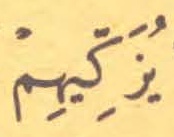 يُزَكِّيهِمْ